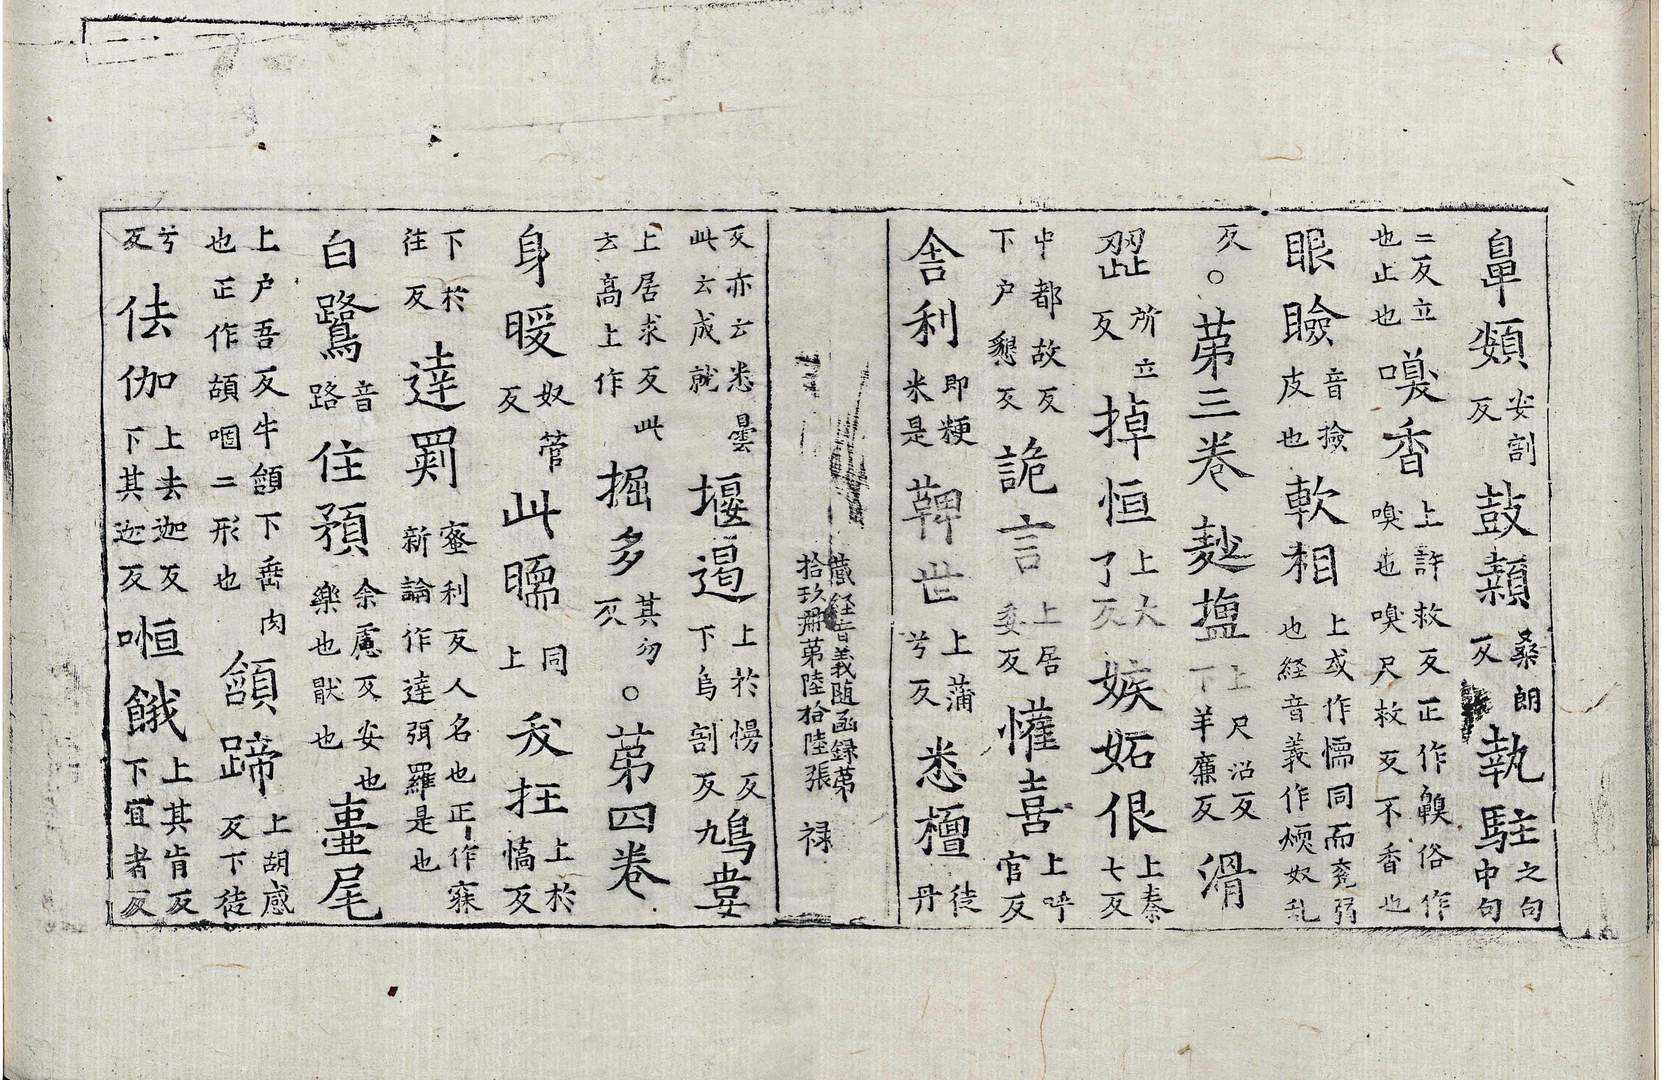 鼻頞安割反鼓顙桑朗反執駐之句中句
二反立也止也嗅香上許救反正作齅俗作嗅也嗅尺救反不香也
眼瞼音撿皮也軟相上或作懦同而兖弱也経音義作㷟奴乱
反。苐三卷麨塩上尺沼反下羊廉反滑
澀所立反掉恒上大了反嫉妬佷上秦七反
中都故反下户懇反詭言上居委反懽喜上呼官反
舎利即粳米是鞞世上蒲兮反悉檀徒丹
藏経音義随函録苐拾玖册苐陸拾陸張 禄
反亦云悉曇此云成就堰遏上於幰反下烏割反鳩婁
上居求反此云髙上作掘多其勿反。苐四卷
身暖奴管反此𣎰同上犮抂上於憍反
下於往反逹罽蜜利反人名也正作寐新論作逹弭羅是也
白鷺音路住預余慮反安也樂也猒也壷尾
上户吾反牛頷下垂肉也正作頡咽二形也頷蹄上胡感反下徒
兮反佉伽上去迦反下其迦反㖤餓上其肯反下宜者反